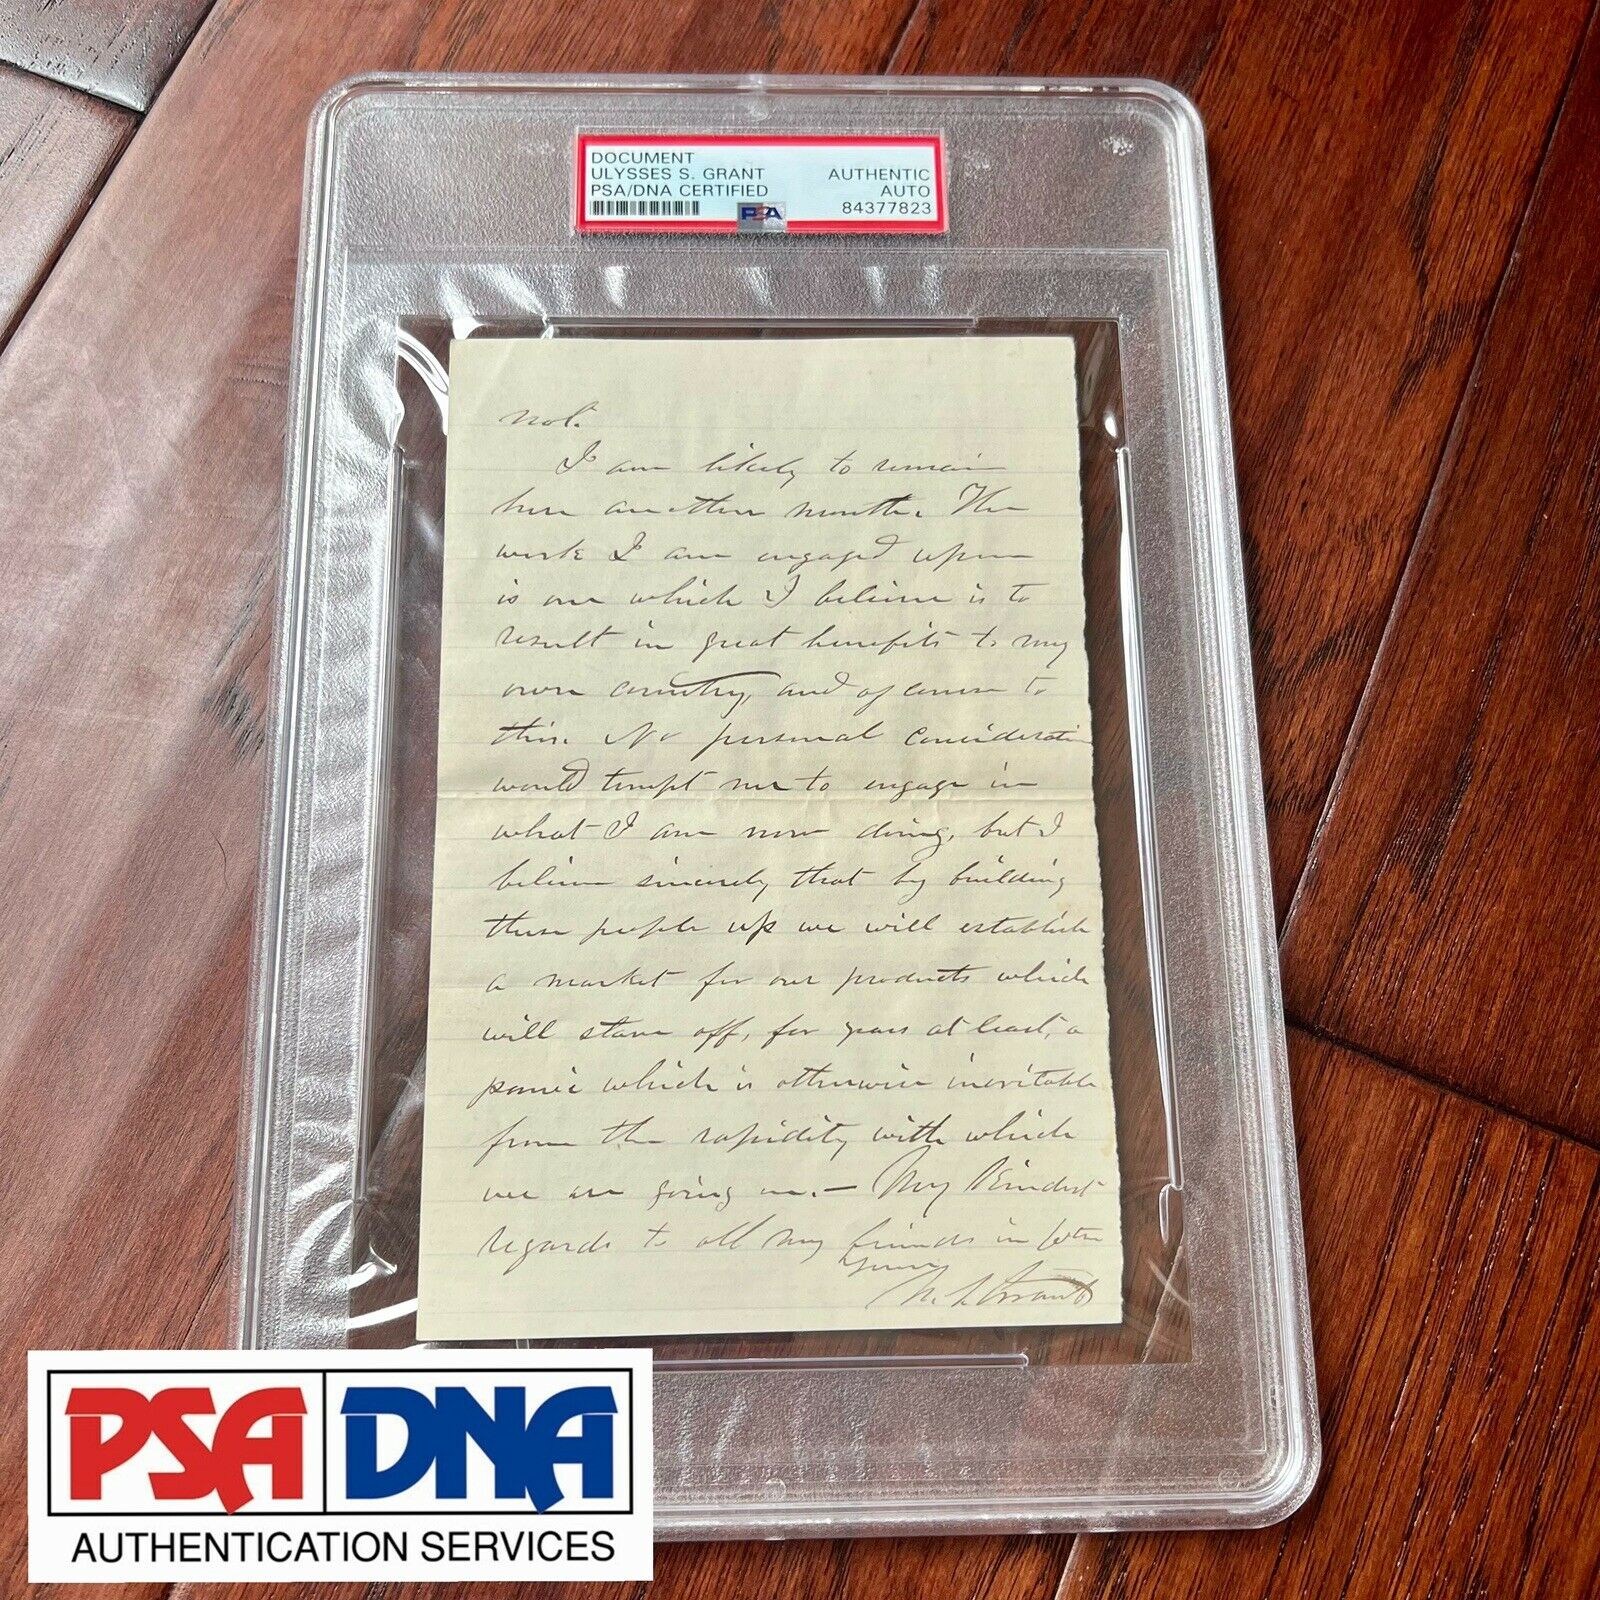 DOCUMENT
ULYSSES S. GRANT
PSA/DNA CERTIFIED
AUTHENTIC
AUTO
84377823
PSA
not.
I am likely to remain
here another month. The
work I am engaged upon
is one which I believe is to
result in great benefits to my
own country, and of course to
this. No personal consideration
would tempt me to engage in
what I am now doing, but I
believe sincerely that by building
these people up we will establish
a market for our products which
will stave off, for years at least, a
panic which is otherwise inevitable
from the rapidity with which
we are going on. — My Kindest
regards to all my friends in
Yours
U. S. Grant
PSA DNA
AUTHENTICATION SERVICES